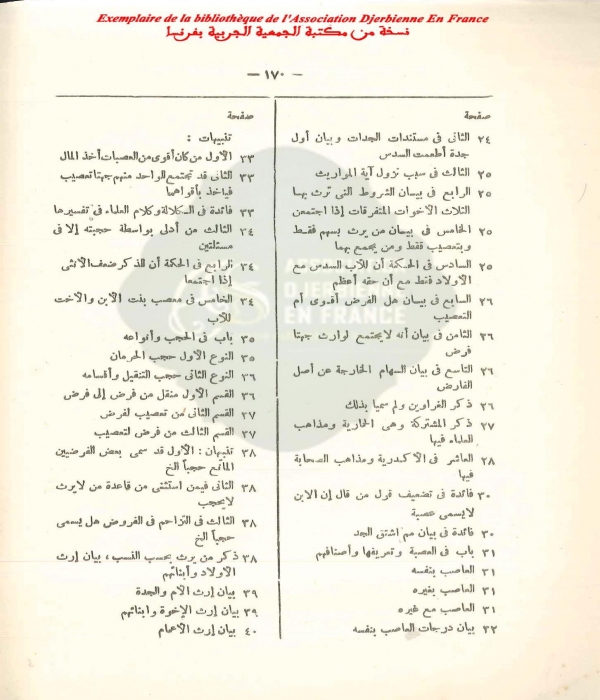 Exemplaire de la bibliothèque de l'Association Djerbienne En France
نسخة من مكتبة الجمعية الجربية بفرنسا
— ١٧٠ —
صفحة
٢٤ الثانى فى مستندات الجدات وبيان أول
جدة أطعمت السدس
٢٥ الثالث فى سبب نزول آية المواريث
٢٥ الرابع فى بيان الشروط التى ترث بها
الثلاث الأخوات المتفرقات إذا اجتمعن
٢٥ الخامس فى بيان من يرث بسهم فقط
وبتعصيب فقط ومن يجمع بهما
٢٥ السادس فى الحكمة أن للأب السدس مع
الأولاد فقط مع أن حقه أعظم
٢٦ السابع فى بيان هل الفرض أقوى أم
التعصيب
٢٦ الثامن فى بيان أنه لا يجتمع لوارث جهتا
فرض
٢٦ التاسع فى بيان السهام الخارجة عن أصل
الفارض
٢٦ ذكر الغراوين ولم سميا بذلك
٢٧ ذكر المشتركة وهى الحمارية ومذاهب
العلماء فيها
٢٨ العاشر فى الأكدرية ومذاهب الصحابة
فيها
٣٠ فائدة فى تضعيف قول من قال إن الابن
لا يسمى عصبة
٣٠ فائدة فى بيان مم اشتق الجد
٣١ باب فى العصبة وتعريفها وأصنافهم
٣١ العاصب بنفسه
٣١ العاصب بغيره
٣١ العاصب مع غيره
٣٢ بيان درجات العاصب بنفسه
صفحة
تنبيهات :
٣٣ الأول من كان أقوى من العصبات أخذ المال
٣٣ الثانى قد تجتمع للواحد منهم جهتا تعصيب
فياخذ بأقواهما
٣٣ فائدة فى الكلالة وكلام العلماء فى تفسيرها
٣٤ الثالث من أدلى بواسطة حجبته إلا فى
مسئلتين
٣٤ الرابع فى الحكمة أن للذكر ضعف الأنثى
إذا اجتمعا
٣٤ الخامس فى معصب بنت الابن والأخت
للأب
٣٥ باب فى الحجب وأنواعه
٣٥ النوع الأول حجب الحرمان
٣٦ النوع الثانى حجب التنقيل وأقسامه
٣٦ القسم الأول منقل من فرض إلى فرض
٣٧ القسم الثانى من تعصيب لفرض
٣٧ القسم الثالث من فرض لتعصيب
٣٨ تنبيهان : الأول قد سمى بعض الفرضيين
المانع حجباً الخ
٣٨ الثانى فيمن استثنى من قاعدة من لا يرث
لا يحجب
٣٨ الثالث فى التزاحم فى الفروض هل يسمى
حجباً الخ
٣٨ ذكر من يرث بحسب النسب ، بيان إرث
الأولاد وأبنائهم
٣٩ بيان إرث الأم والجدة
٣٩ بيان إرث الإخوة وابنائهم
٤٠ بيان إرث الأعمام
ASSOCIATION
DJERBIENNE
EN FRANCE